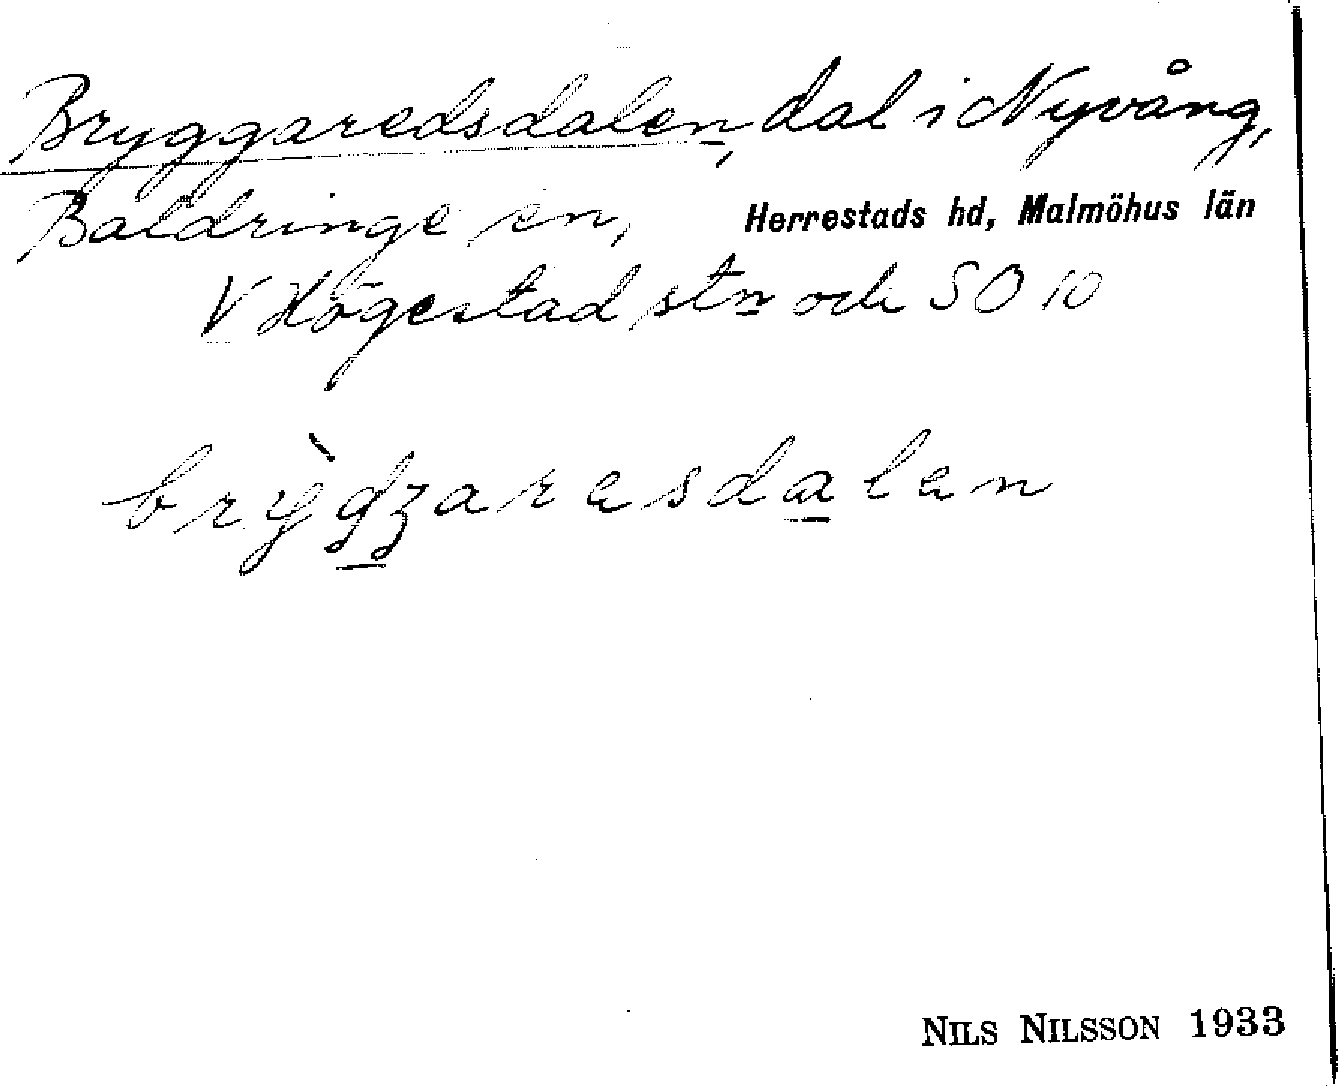 Bryggaredsdalen, dal i Nyvång,
Baldringe sn, Herrestads hd, Malmöhus län
V Högestad stn och SO 10
brỳdʒaresdalen
NILS NILSSON 1933